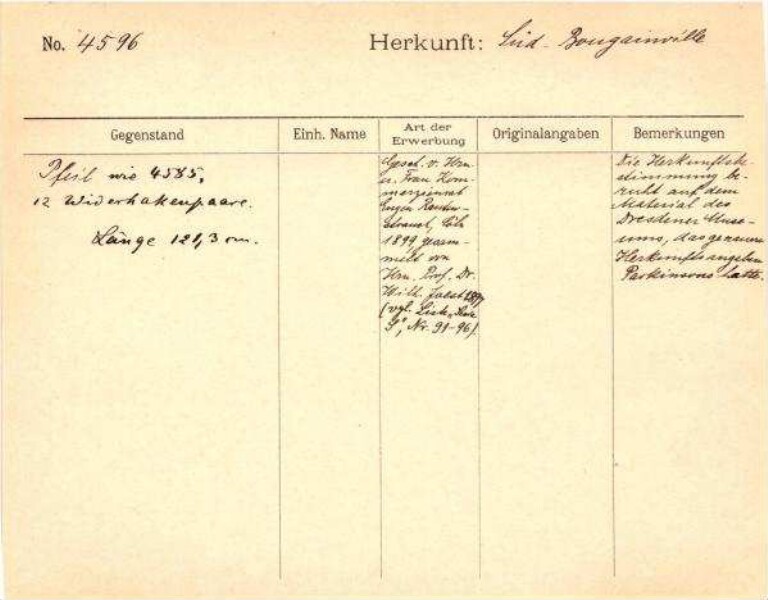 No. 4596
Herkunft: Süd-Bougainville
Gegenstand
Einh. Name
Art der
Erwerbung
Originalangaben
Bemerkungen
Pfeil wie 4585,
12 Widerhakenpaare.
Länge 121,3 cm.
Gesch. v. Hrn
u. Frau Kom-
merzienrat
Eugen Rauten-
strauch, Cöln
1899, gesam-
melt von
Hrn. Prof. Dr.
Wilh. Joest 1897
(vgl. Liste
S", Nr. 91-96).
Die Herkunftsbe-
stimmung be-
ruht auf dem
Material des
Dresdener Muse-
ums, das genauere
Herkunftsangaben
Parkinsons hatte.